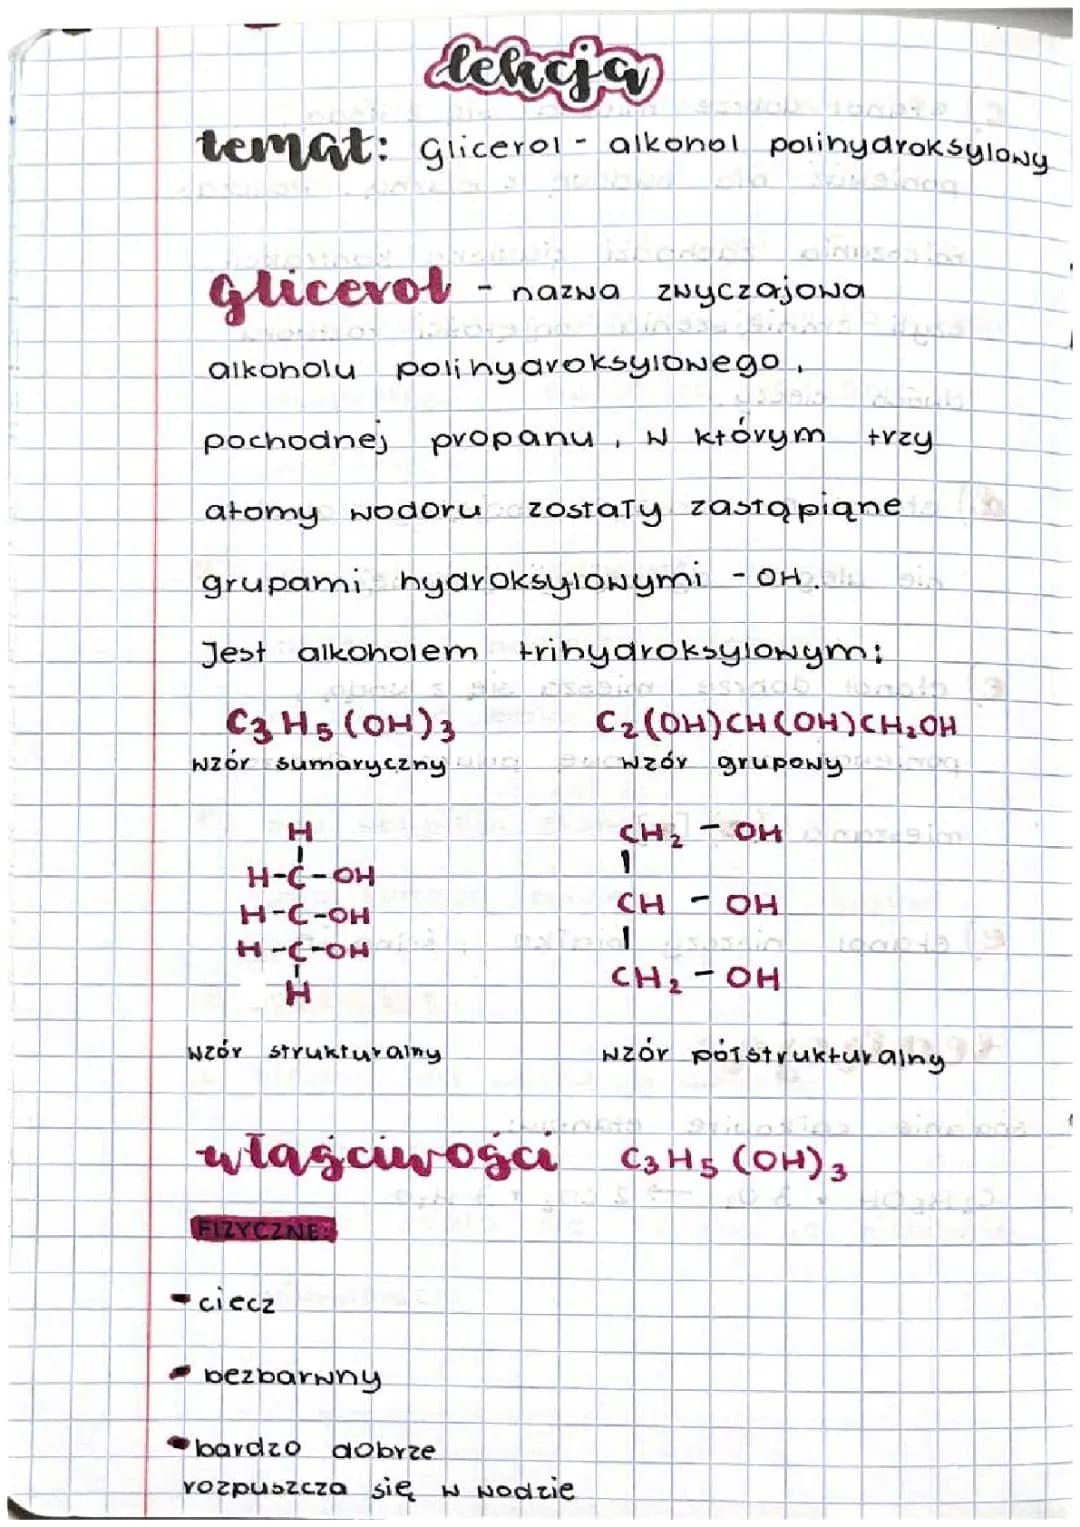 lekcja
temat: Glicerol - alkohol polihydroksylowy
Glicerol - nazwa zwyczajowa
alkoholu polihydroksylowego,
pochodnej propanu, w którym trzy
atomy wodoru zostały zastąpiąne
grupami hydroksylowymi - OH.
Jest alkoholem trihydroksylowym:
C3H5(OH)3 C2(OH)CH(OH)CH2OH
wzór sumaryczny wzór grupowy
H
H-C-OH
H-C-OH
H-C-OH
H
CH2 - OH
CH - OH
CH2 - OH
wzór strukturalny wzór półstrukturalny
właściwości C3H5(OH)3
FIZYCZNE:
- ciecz
- bezbarwny
- bardzo dobrze
rozpuszcza się w wodzie